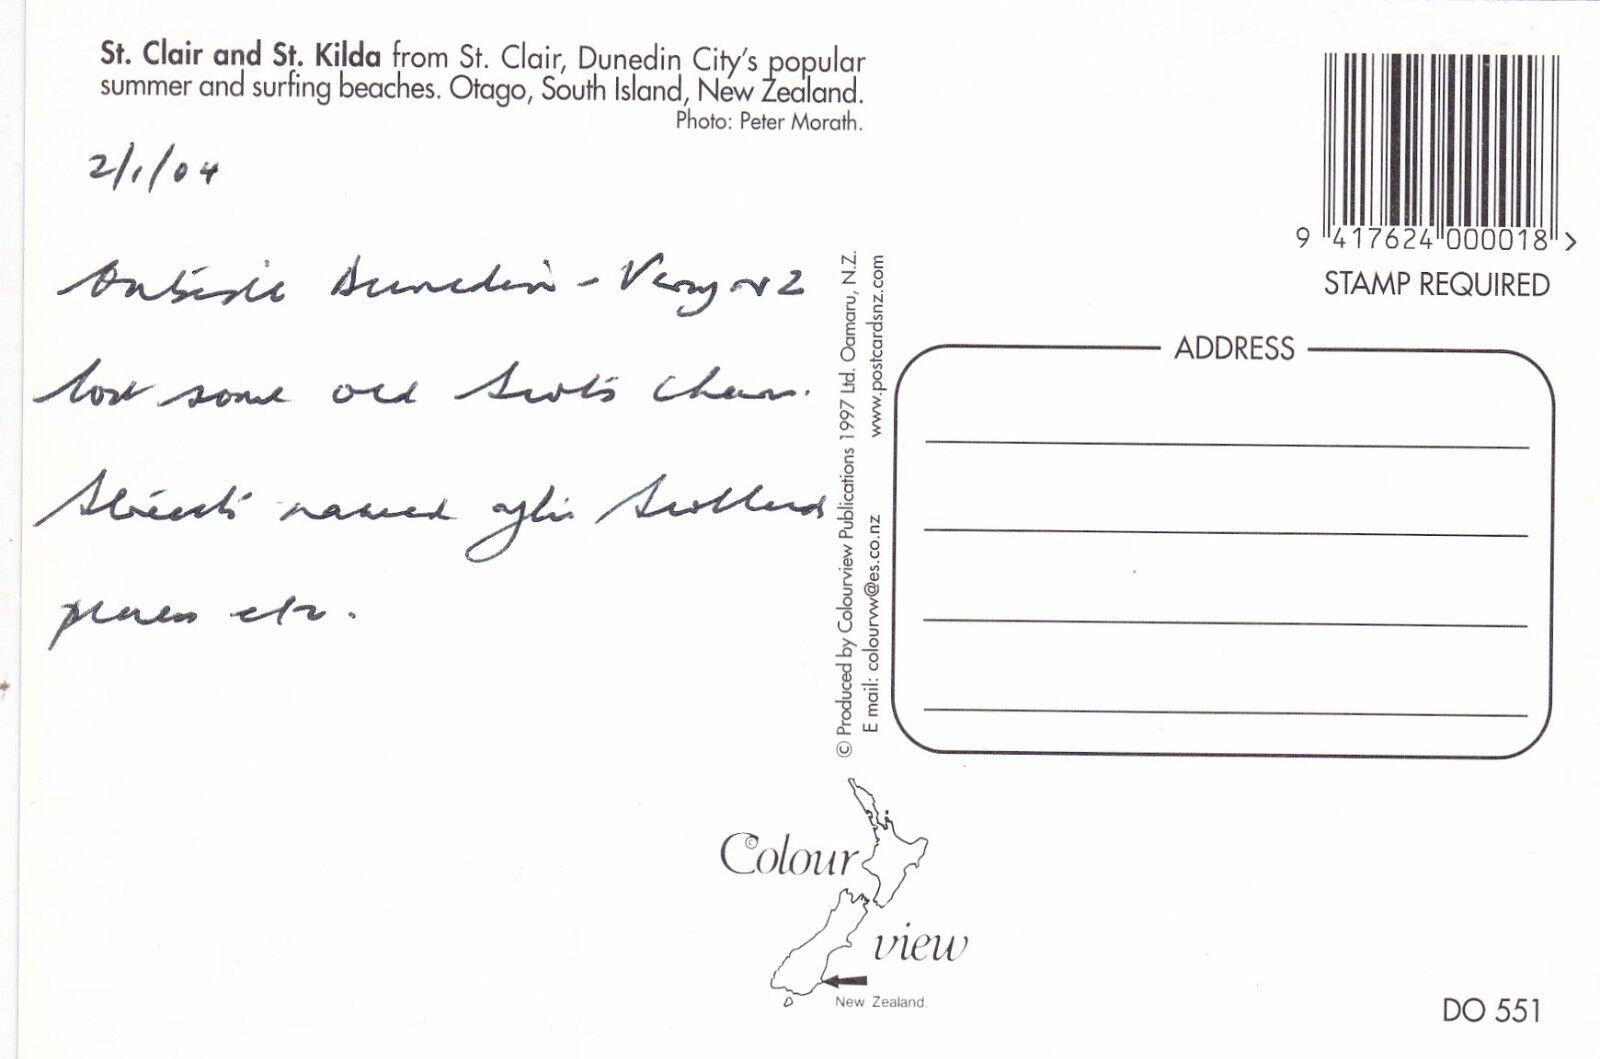 St. Clair and St. Kilda from St. Clair, Dunedin City's popular
summer and surfing beaches. Otago, South Island, New Zealand.
Photo: Peter Morath.
2/1/04
Outside Dunedin - Very NZ
lost some old Scots
Streets named after Scotland
places etc.
© Produced by Colourview Publications 1997 Ltd. Oamaru, N.Z.
E mail: colourvw@es.co.nz www.postcardsnz.com
9 417624 000018 >
STAMP REQUIRED
ADDRESS
© Colour
view
New Zealand.
DO 551